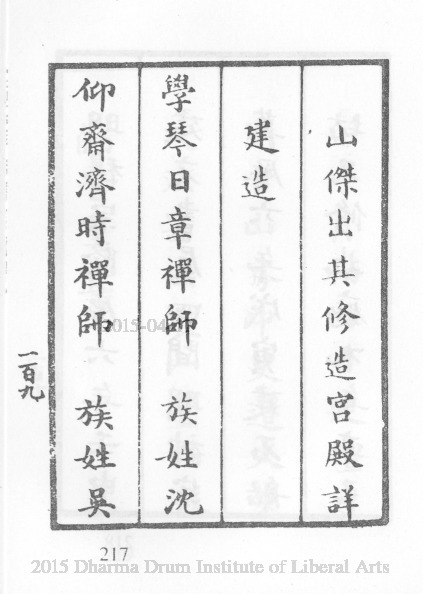 山傑出其修造宮殿詳
建造
學琴日章禪師　族姓沈
仰齋濟時禪師　族姓吳
一百九
217
2015 Dharma Drum Institute of Liberal Arts